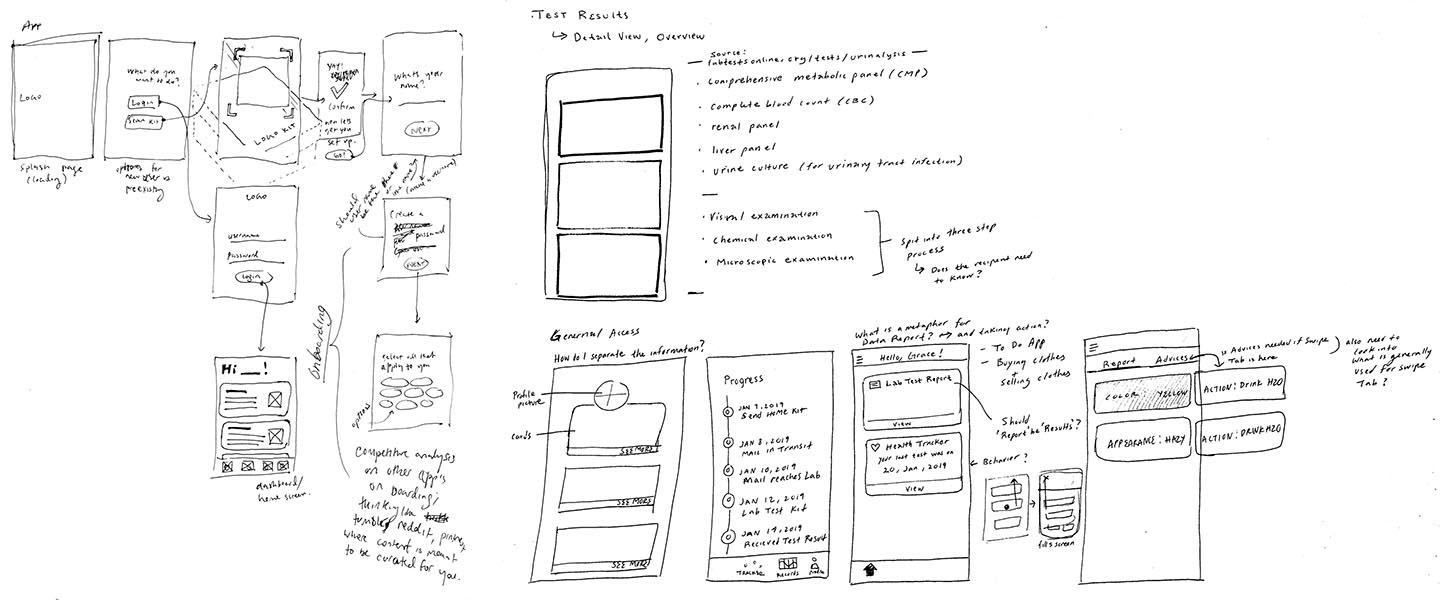 App
LOGO
Splash page
(loading)
What do you
want to do?
Login
Scan Kit
options for
new user vs
preexisting
LOGO KIT
Yay!
Confirm
now lets
get you
set up.
Go!
What's your
name?
NEXT
Should
user name
LOGO
username
Password
Login
Create a
password
NEXT
Onboarding
select all that
apply to you
options
Hi __!
dashboard/
home screen.
Competitive analysis
on other app's
on boarding;
thinking like
tumblr, reddit, pintrest
where content is meant
to be curated for you.
Test Results
Detail View, Overview
Source:
labtestsonline.org/tests/urinalysis
• Comprehensive metabolic panel (CMP)
• Complete blood count (CBC)
• renal panel
• liver panel
• Urine culture (for urinary tract infection)
• Visual examination
• Chemical examination
• Microscopic examination
Spit into three step
process
Does the recipent need
to know?
General Access
How do I separate the information?
Profile
picture
cards
SEE MORE
SEE MORE
SEE MORE
Progress
JAN 7, 2019
Send Home Kit
JAN 8, 2019
Mail in Transit
JAN 10, 2019
Mail reaches Lab
JAN 12, 2019
Lab Test Kit
JAN 14, 2019
Recieved Test Result
TRACKER
RESULTS
What is a metaphor for
Data Report? → and taking action?
- To Do App
- Buying clothes
+
selling clothes
Hello, Grace!
Lab Test Report
View
Health Tracker
your last test was on
20, Jan, 2019
View
Should
"Report" be "Results"?
Behavior?
full screen
Report Advices
COLOR: YELLOW
APPEARANCE: HAZY
Is Advices needed if Swipe
Tab is here
ACTION: DRINK H2O
ACTION: DRINK H2O
also need to
look into
what is generally
used for swipe
Tab?